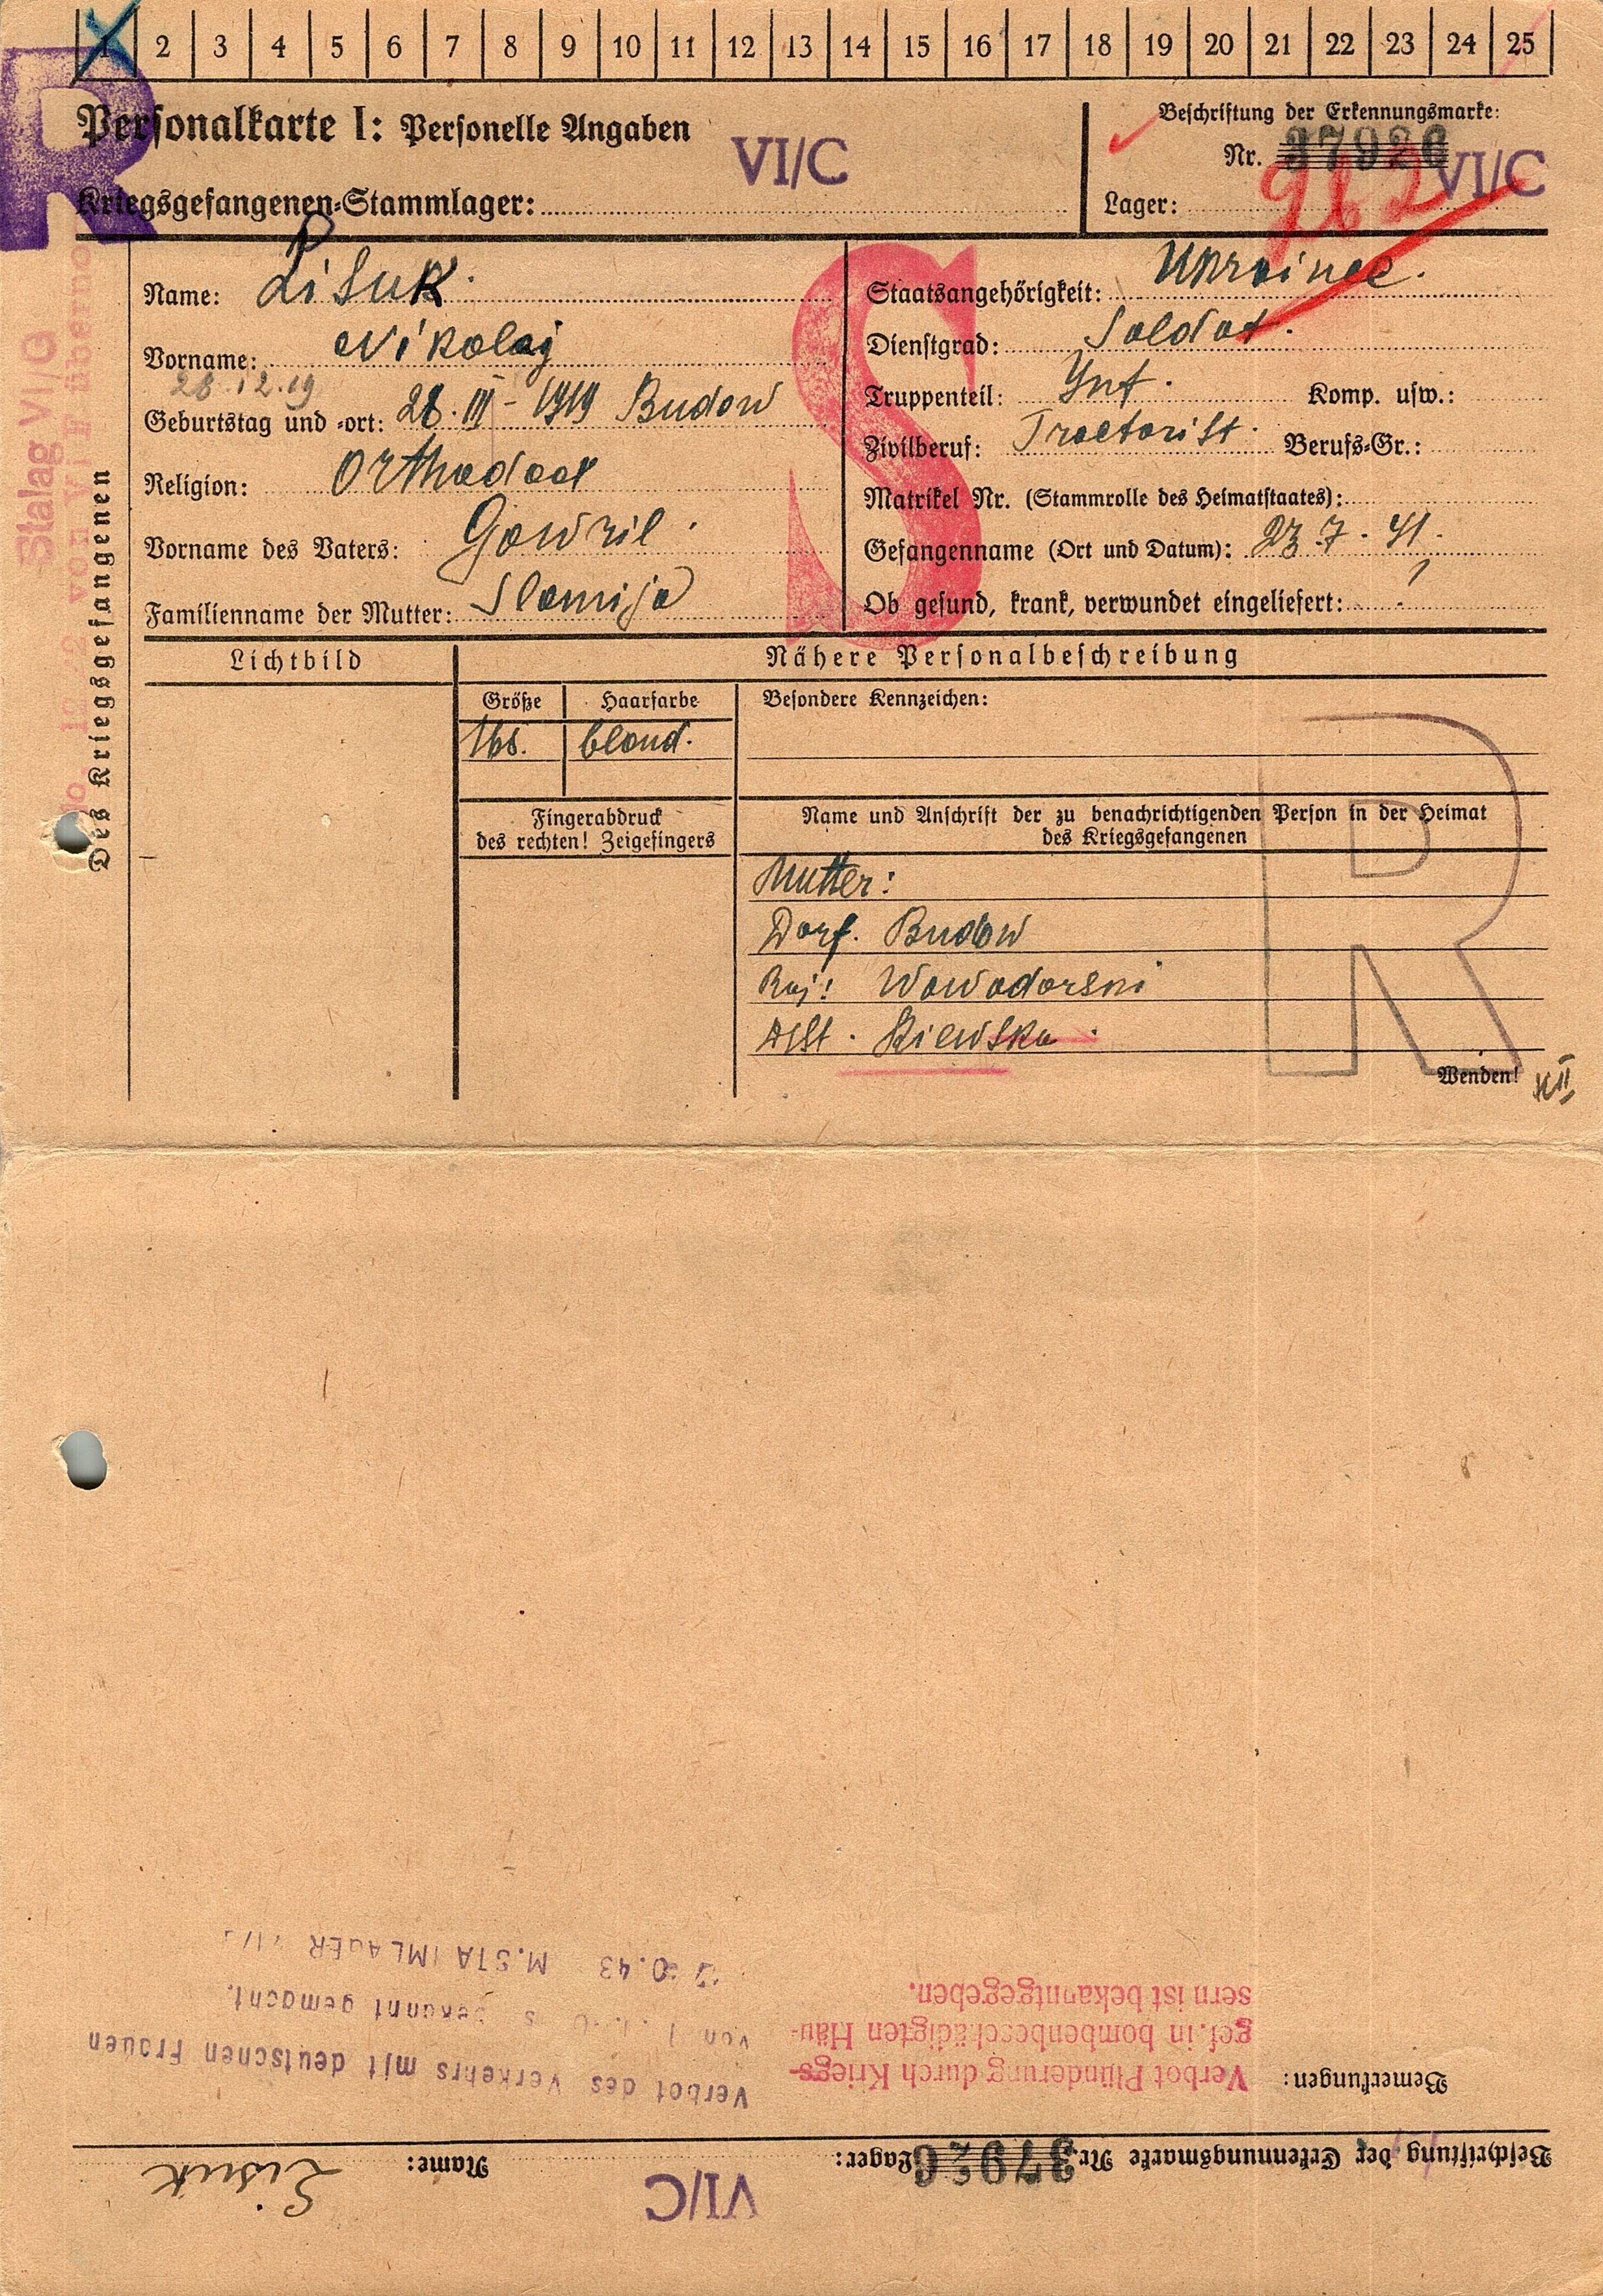 1 2 3 4 5 6 7 8 9 10 11 12 13 14 15 16 17 18 19 20 21 22 23 24 25
R
Personalkarte I: Personelle Angaben
VI/C
Kriegsgefangenen-Stammlager:
Beschriftung der Erkennungsmarke:
Nr. 37926
962
VI/C
Lager:
Stalag VI/G
von VI F übernom
Des Kriegsgefangenen
Name: Lisuk
Vorname: Nikolaj
28.12.19
Geburtstag und -ort: 28. III - 1919 Budow
Religion: Orthodox
Vorname des Vaters: Gowril.
Familienname der Mutter: Slomija
S
Staatsangehörigkeit: Ukrainee.
Dienstgrad: Soldat.
Truppenteil: Inf. Komp. usw.:
Zivilberuf: Tractorist. Berufs-Gr.:
Matrikel Nr. (Stammrolle des Heimatstaates):
Gefangenname (Ort und Datum): 23.7.41.
Ob gesund, krank, verwundet eingeliefert:
Lichtbild
Nähere Personalbeschreibung
Größe Haarfarbe Besondere Kennzeichen:
168. blond.
Fingerabdruck
des rechten! Zeigefingers
Name und Anschrift der zu benachrichtigenden Person in der Heimat
des Kriegsgefangenen
Mutter:
Dorf. Budow
Raj: Wowodorski
Kiewska.
R
Wenden!
Beschriftung der Erkennungsmarke Nr. 37926 Lager: VI/C Name: Lisuk
Bemerkungen:
Verbot Plünderung durch Kriegs-
gef. in bombenbeschädigten Häu-
sern ist bekanntgegeben.
Verbot des Verkehrs mit deutschen Frauen
von bekannt gemacht.
43 M.STAMMLAGER VI/